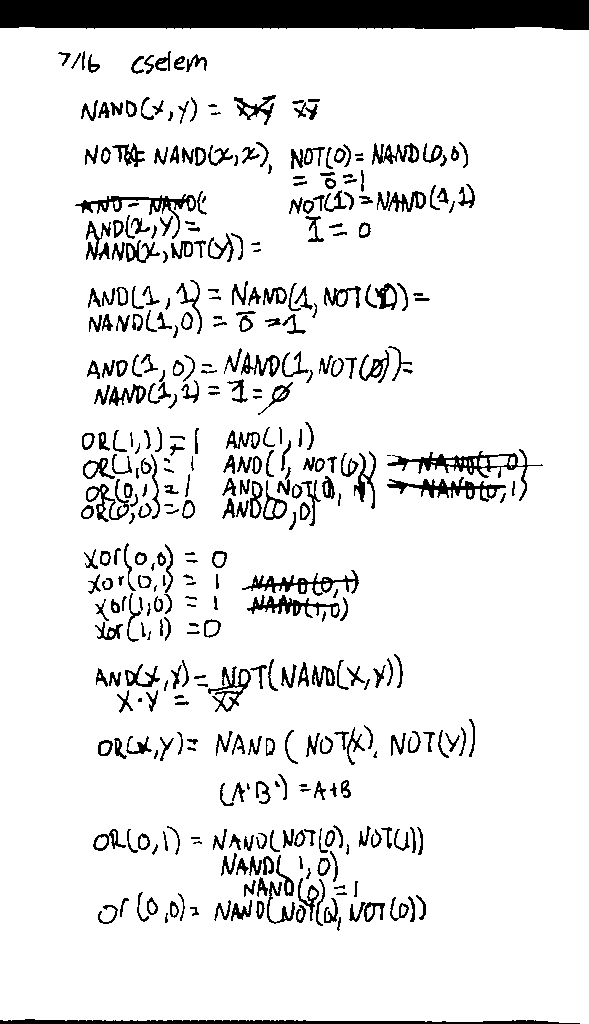 7/16 cselem
NAND(x, y) = x̅y̅ x̅y̅
NOT = NAND(x,x), NOT(0) = NAND(0,0)
= 0̅ = 1
AND = NAND( NOT(1) = NAND(1,1)
AND(x,y) = 1̅ = 0
NAND(x, NOT(y)) =
AND(1, 1) = NAND(1, NOT(1)) =
NAND(1,0) = 0̅ = 1
AND(1,0) = NAND(1, NOT(0)) =
NAND(1,1) = 1̅ = 0
OR(1,1) = 1 AND(1,1)
OR(1,0) = 1 AND(1, NOT(0)) → NAND(1,0)
OR(0,1) = 1 AND(NOT(0), 1) → NAND(0,1)
OR(0,0) = 0 AND(0,0)
xor(0,0) = 0
xor(0,1) = 1 NAND(0,1)
xor(1,0) = 1 NAND(1,0)
xor(1,1) = 0
AND(X,Y) = NOT(NAND(X,Y))
X·Y =
OR(x,Y) = NAND ( NOT(X), NOT(Y))
(A'B') = A+B
OR(0,1) = NAND(NOT(0), NOT(1))
NAND( 1,0)
NAND(0) = 1
or (0,0) = NAND(NOT(0), NOT(0))